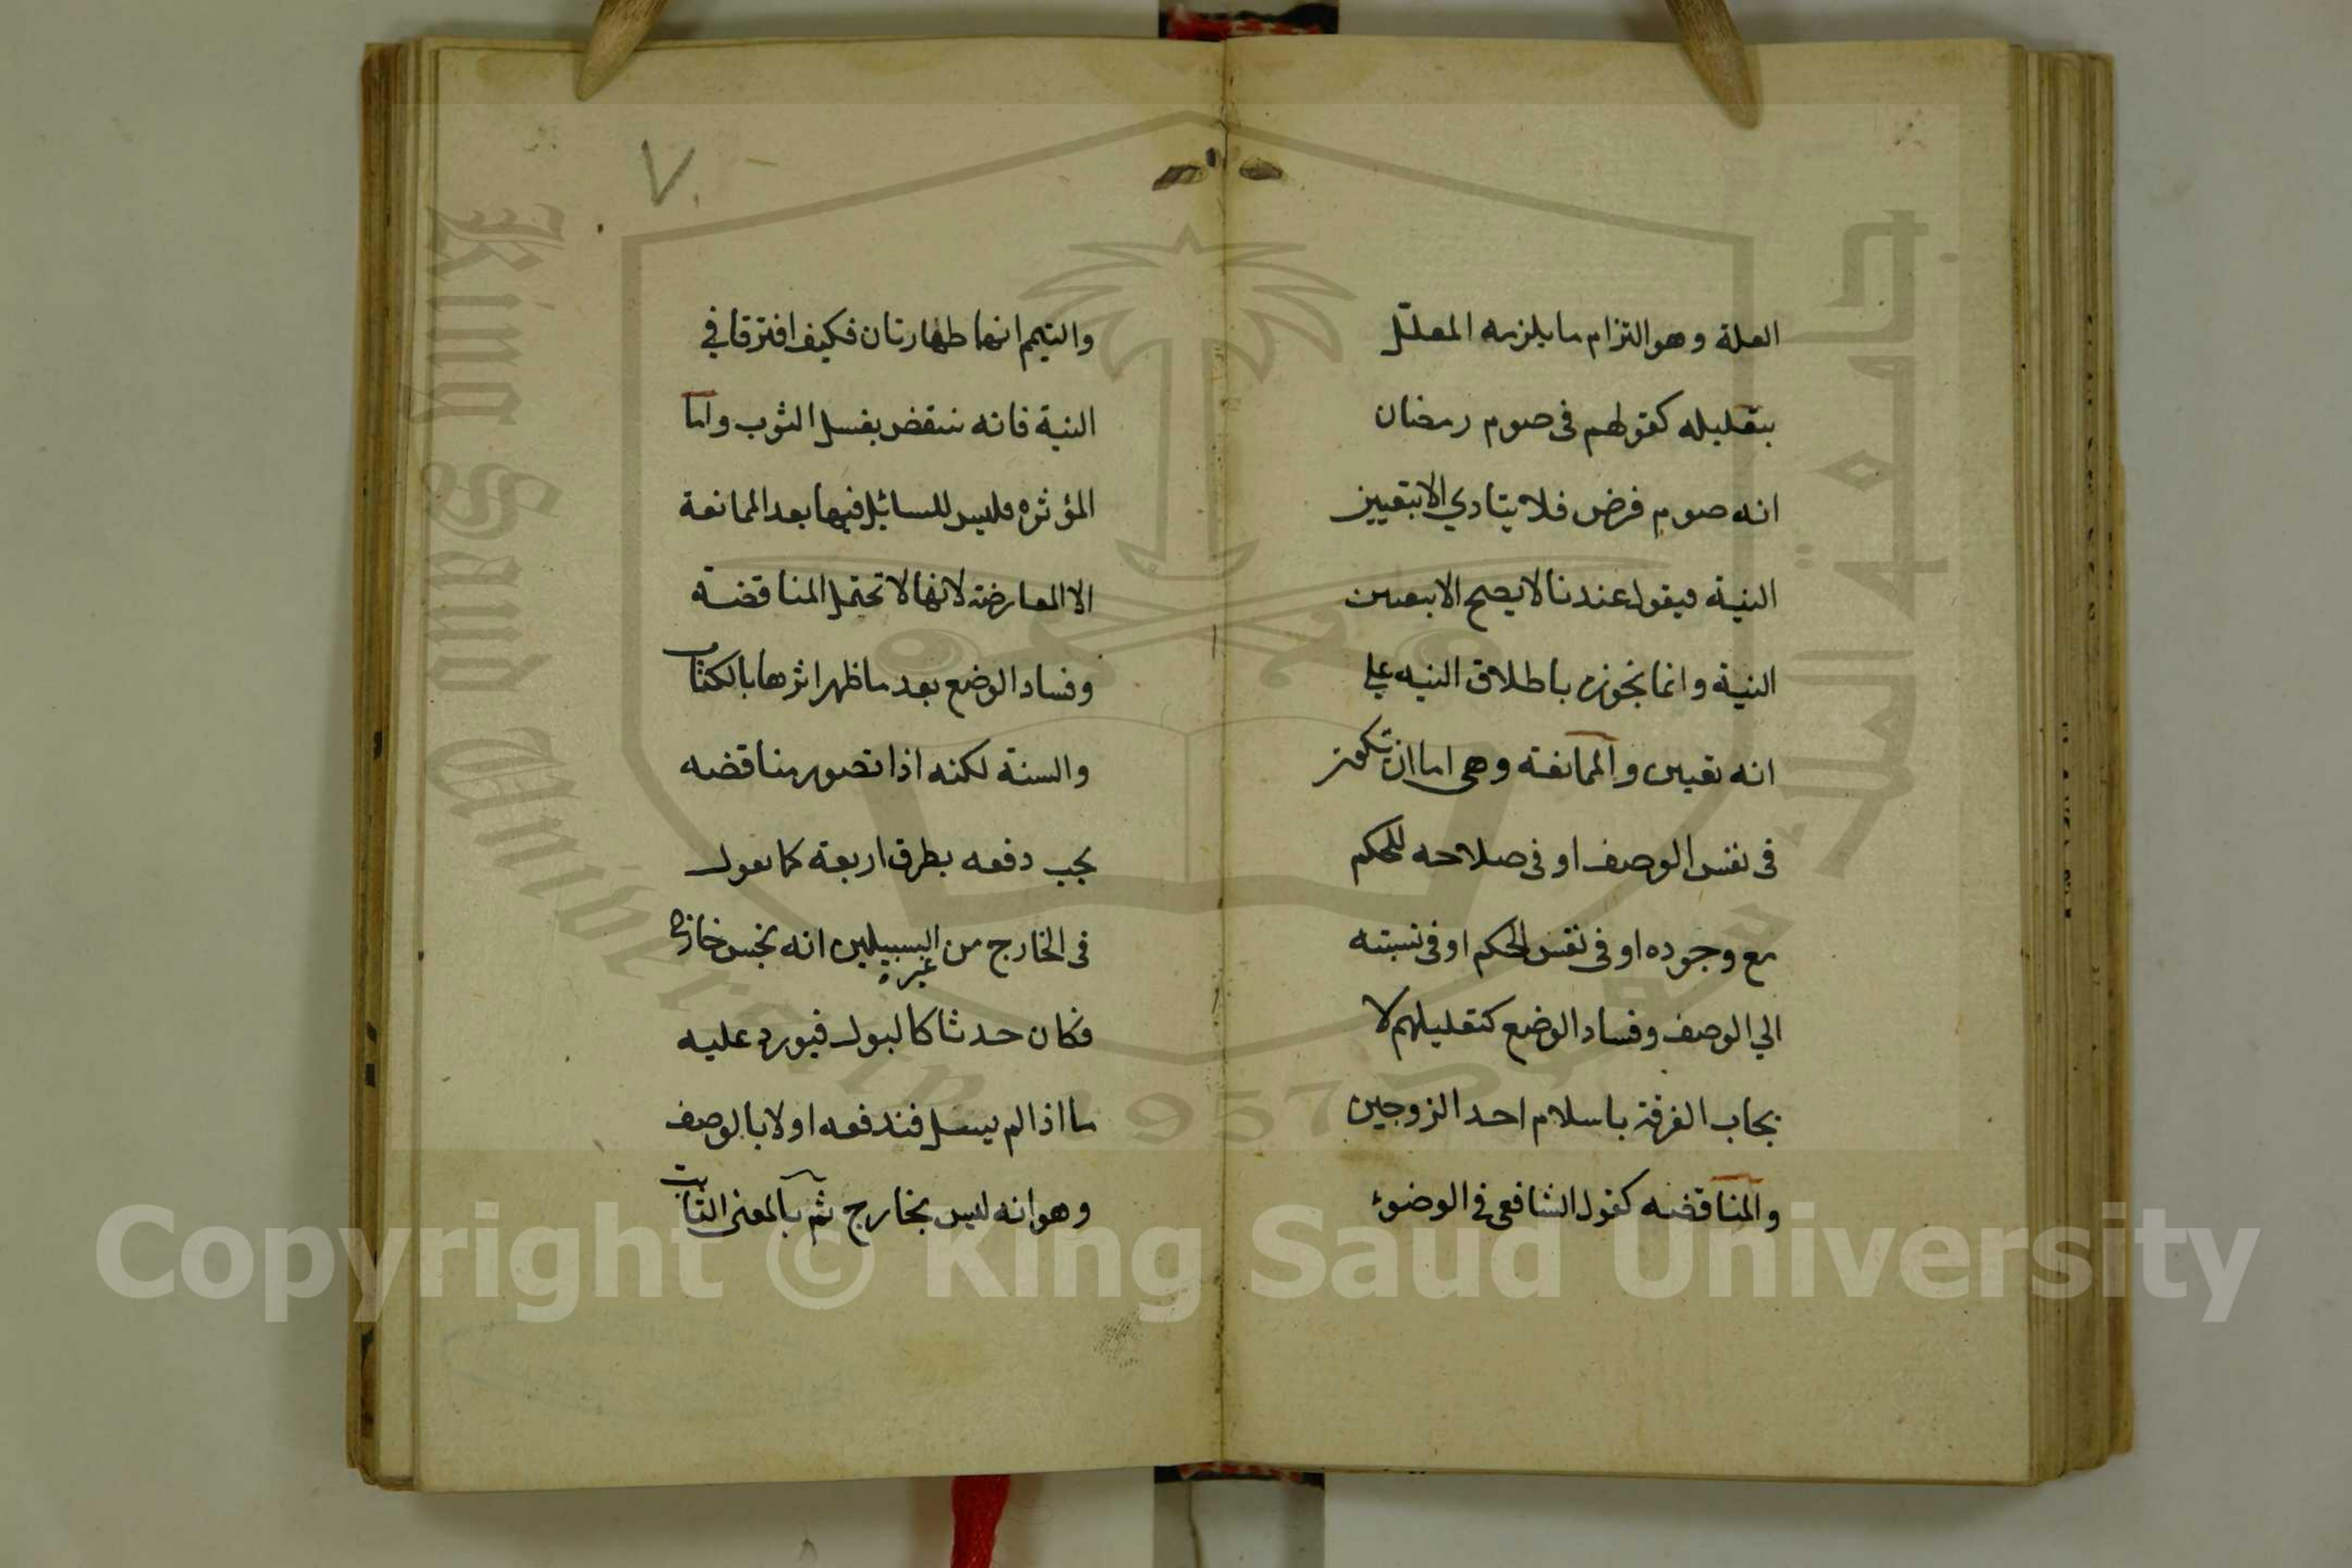 العلة وهو التزام ما يلزمه المعلل
بتعليله كقولهم فى صوم رمضان
انه صوم فرض فلا يتادي الا بتعيين
النية فيقول عندنا لا يصح الا بتعيين
النية وانما نجوزه باطلاق النيه علي
انه تعيين والممانعة وهى اما ان تكون
فى نفس الوصف او فى صلاحه للحكم
مع وجوده او فى نفس الحكم او فى نسبته
الي الوصف وفساد الوضع كتعليلهم لا
يجاب الفرقة باسلام احد الزوجين
والمناقضه كقول الشافعى في الوضوء
٧
والتيمم انهما طهارتان فكيف افترقا في
النية فانه ينتقض بغسل الثوب واما
المؤثره فليس للسائل فيها بعد الممانعة
الا المعارضة لانها لا تحتمل المناقضة
وفساد الوضع بعد ما ظهر اثرها بالكتاب
والسنة لكنه اذا تصور مناقضه
يجب دفعه بطرق اربعة كما نقول
فى الخارج من السبيلين انه نجس خارج
غيره
فكان حدثا كالبول فيورد عليه
ما اذا لم يسل فندفعه اولا بالوصف
وهو انه ليس بخارج ثم بالمعنى الثابت
King Saud University
جامعة الملك سعود
1957
Copyright © King Saud University